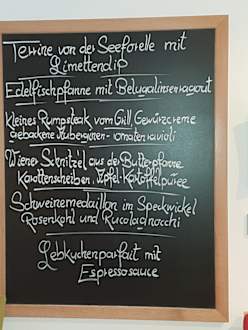 Terrine von der Seeforelle mit
Limettendip
Edelfischpfanne mit Belugalinsenragout
Kleines Rumpsteak vom Grill, Gewürzcreme
gebackene Auberginen-Tomatenravioli
Wiener Schnitzel aus der Butterpfanne
Karottenscheiben, Zipfel-Kartoffelpüree
Schweinemedaillon im Speckwickel
Rosenkohl und Rucolagnocchi
Lebkuchenparfait mit
Espressosauce